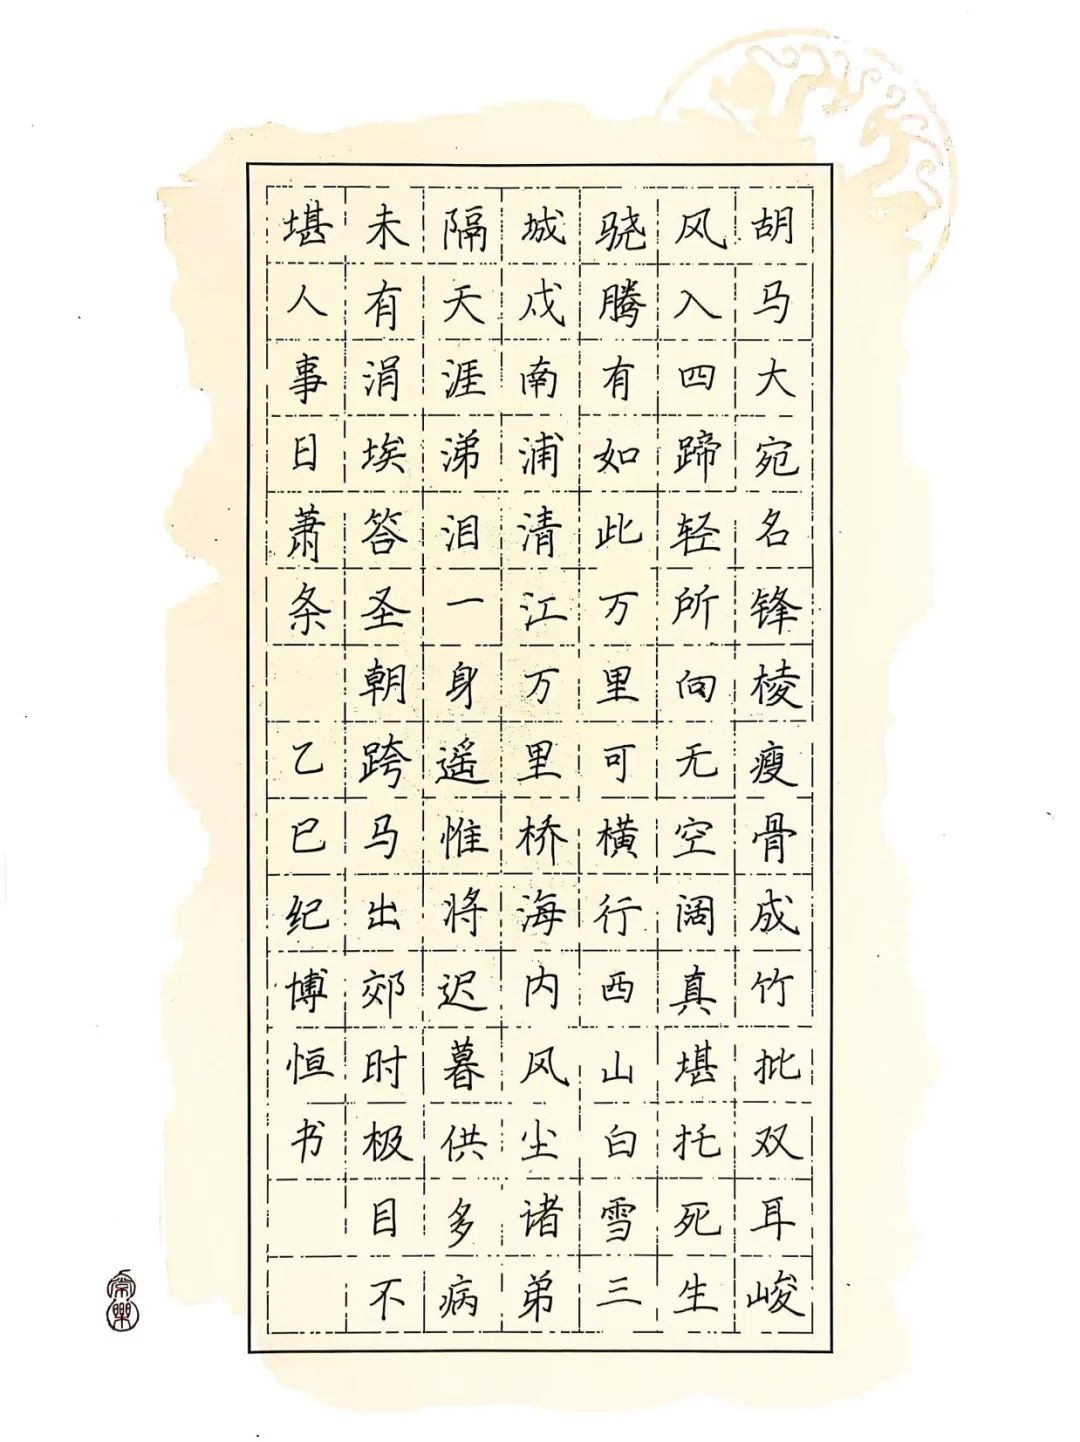 胡马大宛名锋棱瘦骨成竹批双耳峻
风入四蹄轻所向无空阔真堪托死生
骁腾有如此万里可横行西山白雪三
城戍南浦清江万里桥海内风尘诸弟
隔天涯涕泪一身遥惟将迟暮供多病
未有涓埃答圣朝跨马出郊时极目不
堪人事日萧条 乙巳纪博恒书
常乐